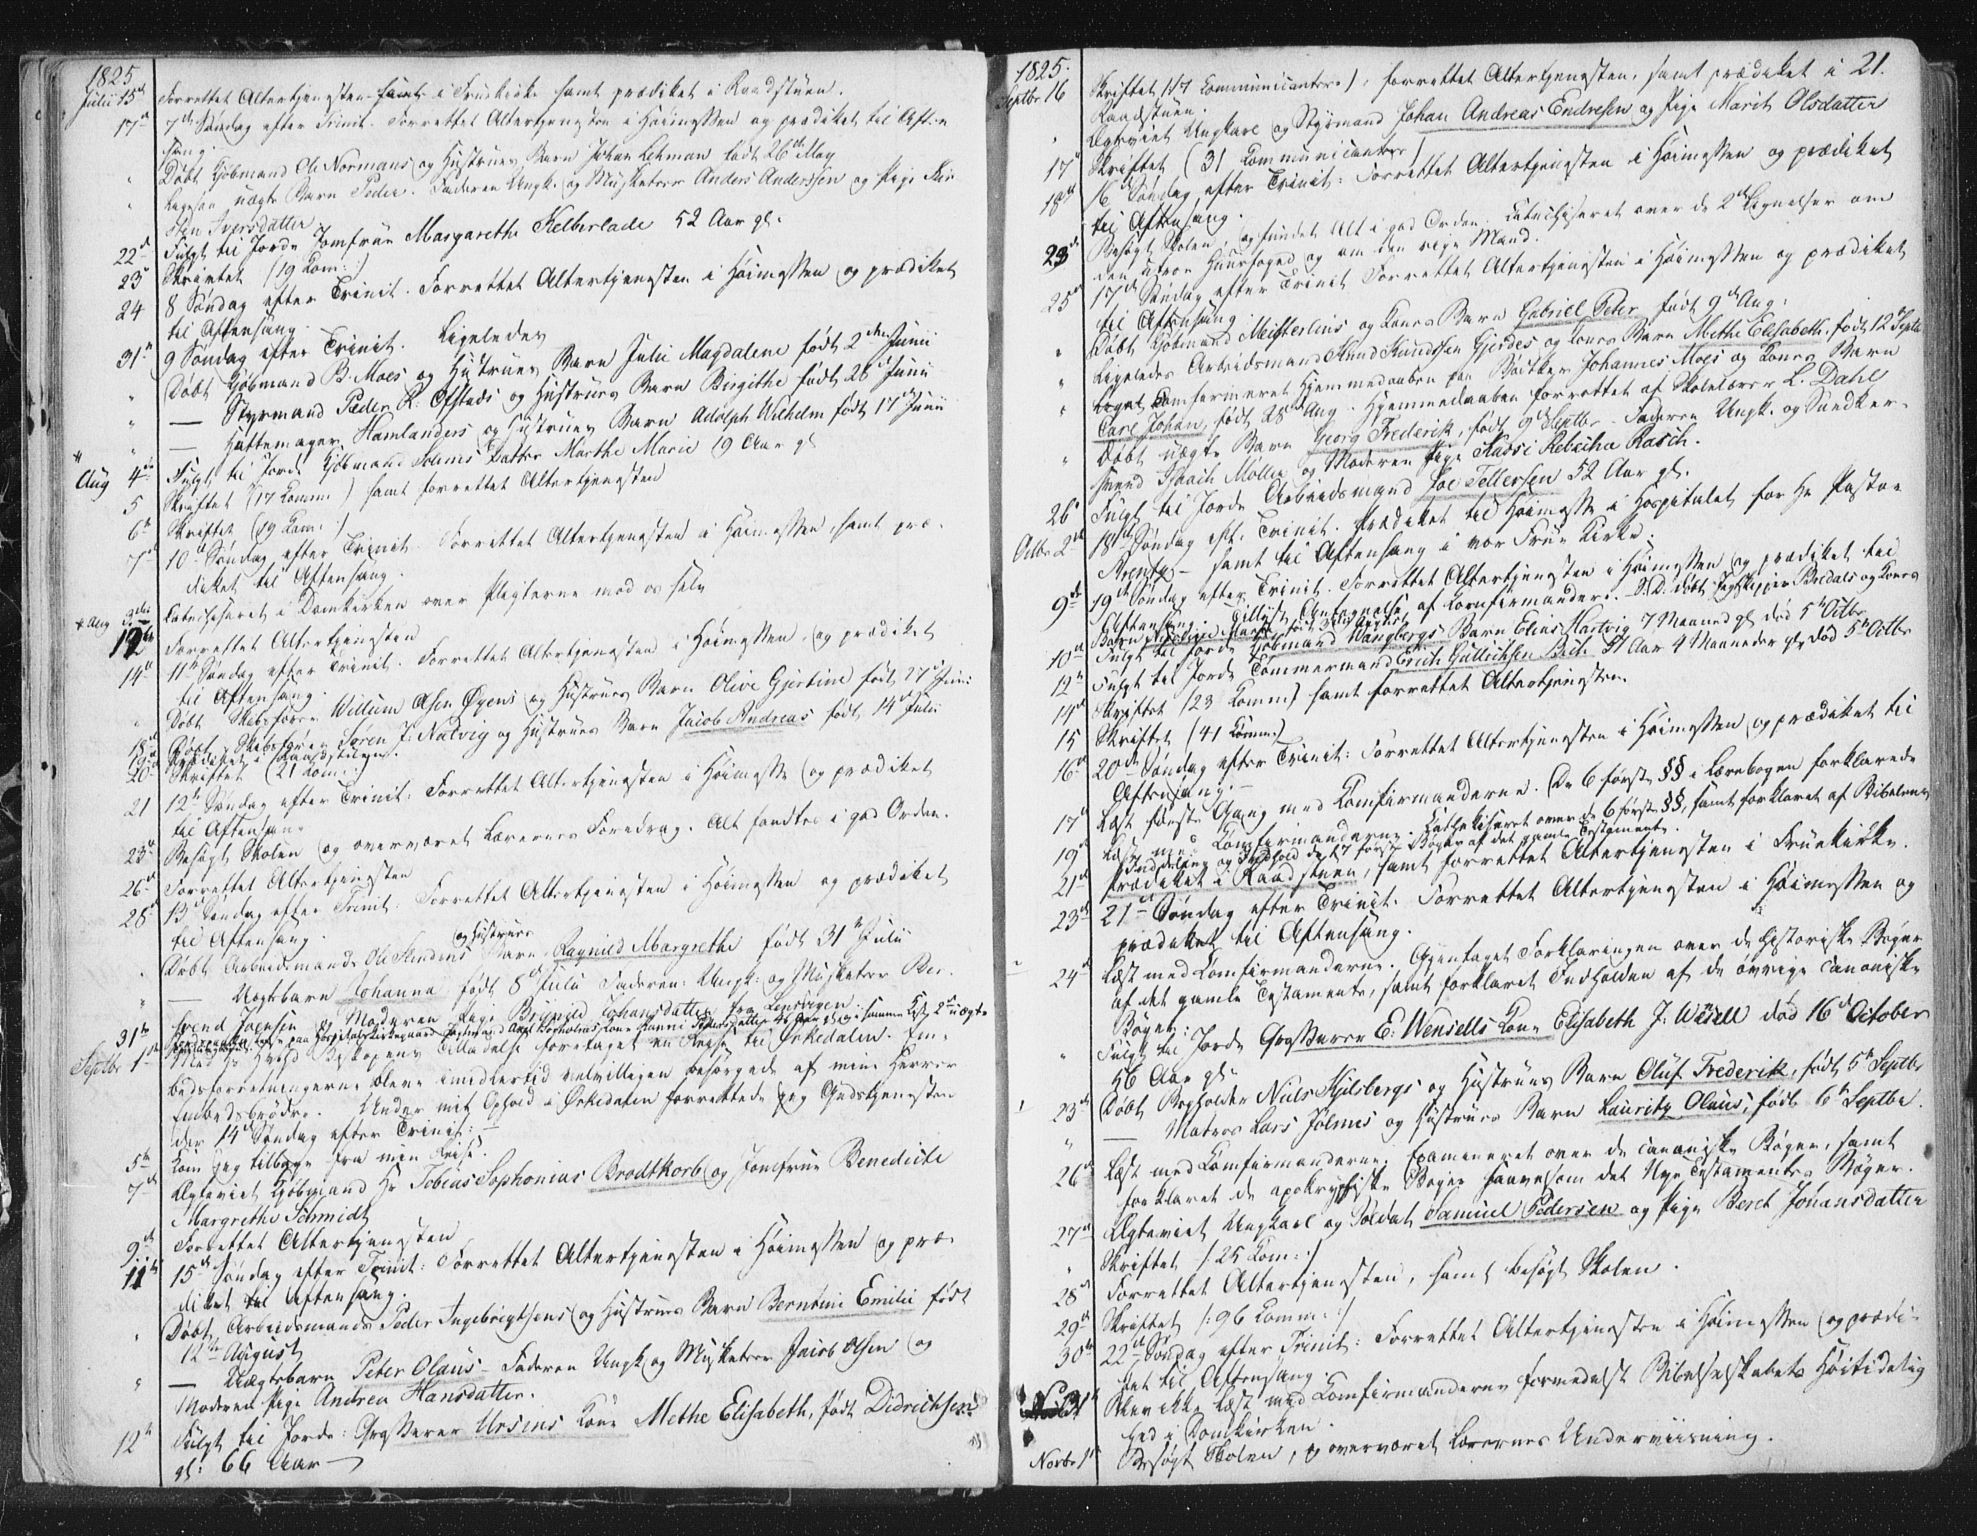 1825
Julii 15de Forrettet Altertjenesten samt i Fruekirke samt prædiket i Raadstuen.
17de 7de Søndag efter Trinit. Forrettet Altertjenesten i Høimessen og prædiket til Aften
sang.
" Døbt Kjøbmand Ole Normans og Hustrues Barn Johan Lehman født 26de May
" Ligesaa uægte Barn Peder. Faderen Ungk. og Musketeer Anders Anderssen og Pige Kir
sten Iversdatter
22de Fulgt til Jorde Jomfrue Margarethe Kelberlade 52 Aar gl.
23de Skriftet (19 Kom:)
24 8 Søndag efter Trinit. Forrettet Altertjenesten i Høimessen og prædiket
til Aftensang.
31te 9 Søndag efter Trinit. Ligeledes
" Døbt Kjøbmand B. Moes og Hustrues Barn Julie Magdalene født 2den Junii
" — Styrmand Peder R. Ofstads og Hustrues Barn Birgithe født 28de Junii
" — Hattemager Hamlanders og Hustrues Barn Adolph Wilhelm født 17de Junii
Aug 4de Fulgt til Jorde Kjøbmand Solems Datter Marthe Marie 19 Aar gl
5 Skriftet (17 Komm:) samt forrettet Altertjenesten
6te Skriftet (19 Kom:)
7de 10de Søndag efter Trinit. Forrettet Altertjenesten i Høimessen samt præ-
diket til Aftensang.
* Aug 3die Catechiseret i Domkirken over Pligterne mod os selv
12te Forrettet Altertjenesten
14de 11te Søndag efter Trinit. Forrettet Altertjenesten i Høimessen og prædiket
til Aftensang.
" Døbt Skibsfører Willum Asen Øyens og Hustrues Barn Olive Gjertine født 27de Juni
18de Døbt Skibsfører Søren J: Nalvig og Hustrues Barn Jacob Andreas født 14de Julii
19de Prædiket i Raadstuen.
20de Skriftet (21 Kom:)
21 12te Søndag efter Trinit: Forrettet Altertjenesten i Høimesse og prædiket
til Aftensang
23de Besøgt Skolen og overværet Lærernes Foredrag. Alt fandtes i god Orden.
26de Forrettet Altertjenesten
28de 13de Søndag efter Trinit: Forrettet Altertjenesten i Høimessen og prædiket
til Aftensang.
og Hustrues
" Døbt Arbeidsmands Ole Stenens Barn Ragnild Margrethe født 31te Julii
" — Uægtebarn Johanna født 8de Julii Faderen: Ungk: og Musketeer Ber-
svend Joensen og Moderen Pige Brynild Johansdatter fra Lensvigen.
31te
Septbr 1ste Med Hr. Biskopens Tilladelse foretaget en Reise til Ørkedalen. Em-
bedsforretningerne bleve imidlertid velvilligen besørgede af mine Herrer
Embedsbrødre. Under mit Ophold i Ørkedalen forrettede jeg Gudstjenesten
der 14de Søndag efter Trinit: —
5te Kom jeg tilbage fra min Reise.
7de Ægteviet Kjøbmand Hr Tobias Sophonias Brodtkorb og Jomfrue Benedicte
Margrethe Schmidt
9de Forrettet Altertjenesten
11te 15de Søndag efter Trinit: Forrettet Altertjenesten i Høimessen og præ-
diket til Aftensang.
" Døbt Arbeidsmands Peder Ingebrigtsens og Hustrues Barn Berntine Emilie født
12te August
" — Uægtebarn Peter Olaus – Faderen Ungk og Musketeer Jacob Olsen og
Moderen Pige Andrea Hansdatter.
12te Fulgt til Jorde: Grosserer Ursins Kone Methe Elisabeth, født Didrichsen
gl: 66 Aar —
1825. 21.
Septbr 16 Skriftet (17 Communicantere), forrettet Altertjenesten, samt prædiket i
Raadstuen.
" Ægteviet Ungkarl og Styrmand Johan Andreas Endresen og Pige Marit Olsdatter
17de Skriftet (31 Communicanter)
18de 16de Søndag efter Trinit: Forrettet Altertjenesten i Høimessen og prædiket
til Aftensang.
23de Besøgt Skolen, og fundet Alt i god Orden. Catechiseret over de 2de Lignelser om
den utroe Huusfoged og om den rige Mand.
25de 17de Søndag efter Trinit Forrettet Altertjenesten i Høimessen og prædiket
til Aftensang
" Døbt Kjøbmand Meisterlins og Kones Barn Gabriel Peter født 9de Aug:
" Ligeledes Arbeidsmand Knud Knudssen Gjerdes og Kones Barn Methe Elisabeth, født 12te Septbr
" Confermeret Hjemmedaaben paa Bødtker Johannes Moes og Kones Barn
Carl Johan, født 28de Aug. Hjemmedaaben forrettet af Skolelærer L. Dahl
" Døbt uægte Barn Georg Frederik, født 9de Septbr – Faderen Ungk. og Snedker-
svend Isaach Møller og Moderen Pige Kadsi Rebecha Rasch.
26de Fulgt til Jorde Arbeidsmand Joe Tellefsen 52 Aar gl.
Octbr 2de 18de Søndag eft. Trinit. Prædiket til Høimesse i Hospitalet for Hr. Pastor
Arentz – samt til Aftensang i vor Frue Kirke.
9de 19de Søndag efter Trinit. Forrettet Altertjenesten i Høimessen og prædiket til
Aftensang. Tillyst Antagnelse af Confirmander. S. D. døbt
10de Fulgt til Jorde Kjøbmand Wangbergs Barn Elias Hartvig 7 Maaned gl. død 5te Octbr
12te Fulgt til Jorde Tømmermand Erich Gullichsen Bech 51 Aar 4 Maaneder gl. død 5te Octbr
14de Skriftet (23 Komm) samt forrettet Altertjenesten.
15 Skriftet (41 Komm:)
16de 20de Søndag efter Trinit: Forrettet Altertjenesten i Høimessen og prædiket til
Aftensang. —
17de Læst første Gang med Confirmanderne. De 6 første §§ i Lærebogen forklarede
19de Læst med Confirmanderne. Cathekiseret over de 6 første §§, samt forklaret af Bibelens
Inddeling og Indhold de 17 første Bøger af det gamle Testamente.
21de Prædiket i Raadstuen, samt forrettet Altertjenesten i Fruekirke.
23de 21de Søndag efter Trinit. Forrettet Altertjenesten i Høimessen og
prædiket til Aftensang.
24de Læst med Confirmanderne. Gjentaget Forklaringen over de historiske Bøger
af det gamle Testamente, samt forklaret Indholden af de øvrige canoniske
Bøger.
" Fulgt til Jorde Grosserer E: Wensells Kone Elisabeth J: Wensell død 16de October
56 Aar gl.
23de Døbt Bogholder Niels Kjelsbergs og Hustrues Barn Oluf Frederik, født 5te Septbr
" — Matros Lars Jølmes og Hustrues Barn Lauritz Olaus, født 6te Septbr.
26de Læst med Confirmanderne. Examineret over de canoniske Bøger, samt
forklaret de apokryphiske Bøger saavelsom det Nye Testamentes Bøger.
27de Ægteviet Ungkarl og Soldat Samuel Pedersen og Pige Beret Johansdatter
" Skriftet /: 25 Kom: /
28de Forrettet Altertjenesten, samt besøgt Skolen.
29de Skriftet /: 96 Komm: /
30te 22de Søndag efter Trinit: Forrettet Altertjenesten i Høimessen og prædi-
ket til Aftensang.
31te Blev ikke læst med Confirmanderne formedelst Bibelselskabets Høitidelig
hed i Domkirken.
Novbr 1ste Besøgt Skolen, og overværet Lærernes Underviisning.